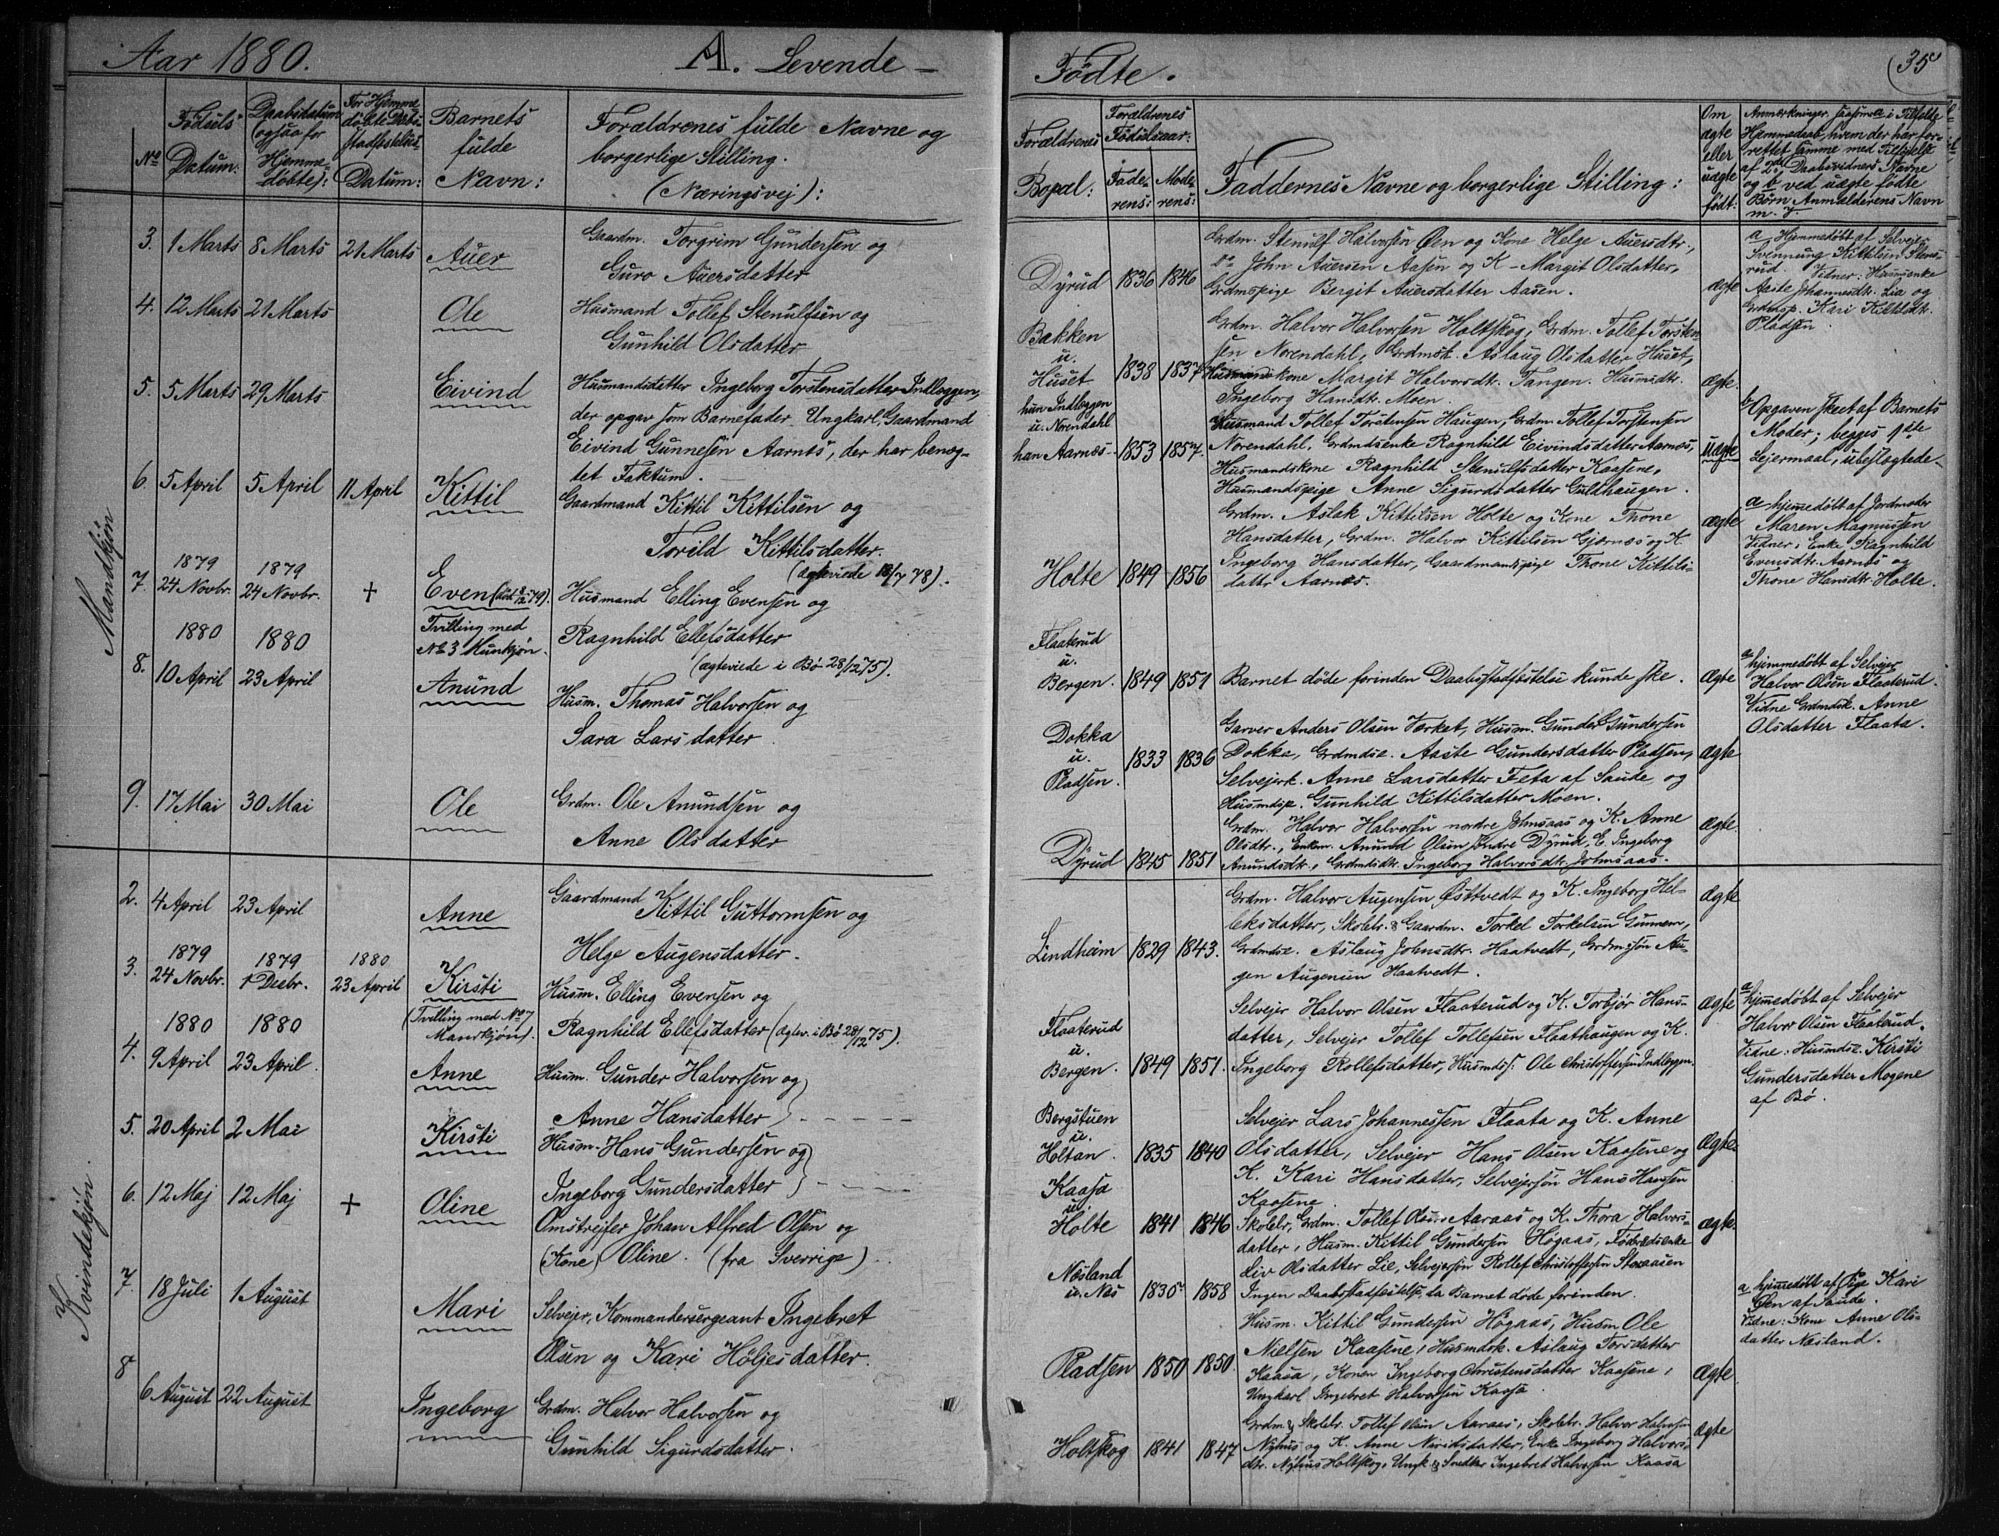 Aar 1880.
A. Levende —
Fødte.
(35
No
Fødsels
Datum:
Daabsdatum
(ogsaa for
Hjemme-
døbte):
For Hjemme-
døbte Daabs-
stadfæstelses
Datum:
Barnets
fulde
Navn:
Forældrenes fulde Navne og
borgerlige Stilling.
(Næringsvej):
Forældrenes
Bopæl:
Forældrenes
Fødselsaar:
Fade-
rens:
Mode-
rens:
Faddernes Navne og borgerlige Stilling:
Om
ægte
eller
uægte
født:
Mandkjøn
3. 1 Marts 8 Marts 21 Marts Auer
Gaardm. Torgrim Gundersen og
Guro Auersdatter
Dyrud 1836 1846
Grdm. Stenulf Halvorsen Øen og Kone Helge Auersdtr.,
Do John Auersen Aasen og K— Margit Olsdatter,
Grdmspige Bergit Auersdatter Aasen.
ægte
a Hjemmedøbt af Selvejer
Svennung Kittilsen Stens-
rud. Vidner: Husmenke
Aaste Johannesdtr. Lia og
Grdmsp. Kari Kittilsdtr.
Pladsen.
4. 12 Marts 21 Marts Ole
Husmand Tollef Stenulfsen og
Gunhild Olsdatter
Bakken
u.
Huset 1838 1837
Grdm. Halvor Halvorsen Holtskog, Grdm. Tollef Torsten-
sen Norendahl, Grdmsk. Aslaug Olsdatter Huset,
Husmandskone Margit Halvorsdtr. Tangen. Husmdtr.
Ingeborg Hansdtr. Moen.
Ægte.
5. 5 Marts 29 Marts Eivind
Husmandsdatter Ingeborg Torstensdatter Indlæggen,
der opgav som Barnefader Ungkarl, Gaardmand
Eivind Gunnesen Aarnes, der har benæg-
tet Faktum.
hun Indlæggen
u. Norendahl
han Aarnæs— 1853 1857
Husmand Tollef Torstensen Haugen, Grdm. Tollef Torstensen
Norendahl, Grdmdsenke Ragnhild Eivindsdatter Aarnæs,
Husmandskone Ragnhild Stenulfsdatter Kaasene,
Husmandspige Anne Sigurdsdatter Guldhaugen.
uægte
b Opgaven skeet af Barnets
Moder; begges 1ste
Lejermaal, ubeslægtede-
6. 5 April 5 April 11 April Kittil
Gaardmand Kittil Kittilsen og
Torild Kittilsdatter.
(ægteviede 18/7 78).
Holte 1849 1856
Grdm. Aslak Kittilsen Holte og Kone Thone
Hansdatter, Grdm. Halvor Kittilsen Gjernæs og K.
Ingeborg Hansdatter, Gaardmandspige Thone Kittils-
datr Aarnæs.
ægte
a hjemmedøbt af Jordmoder
Maren Magnussen
Vidner: Enke Ragnhild
Evensdtr. Aarnæs og
Thone Hansdtr. Holte.
1879 1879
7. 24 Novbr. 24 Novbr. + Even (død 2/12 79).
Tvilling med
No 3 Kvinkjøn.
Husmand Elling Evensen og
Ragnhild Ellefsdatter
(ægteviede i Bø 28/12 75).
Flaaterud
u.
Bergen. 1849 1851
Barnet døde forinden Daabsstadfæstelse kunde ske.
Ægte
a hjemmedøbt af Selvejer
Halvor Olsen Flaaterud.
Vidne Grdmdsk. Anne
Olsdatter Flaata.
1880 1880
8. 10 April 23 April Anund
Husm. Thomas Halvorsen og
Sara Larsdatter
Dokka
u.
Pladsen. 1833 1836
Garver Anders Olsen Værket, Husm. Gunder Gundersen
Dokka, Grdmdsk. Aaste Gundersdatter Pladsen,
Selvejerk. Anne Larsdatter Feta af Saude, og
Husmdsp. Gunhild Kittilsdatter Moen.
Ægte
9. 17 Mai 30 Mai Ole
Grdm. Ole Anundsen og
Anne Olsdatter
Dyrud 1845 1851
Grdm. Halvor Halvorsen nordre Johnsaas og K. Anne
Olsdtr., Enkem. Anund Olsen Indre Dyrud, E. Ingeborg
Anundsdtr., Grdmdsdtr. Ingeborg Halvorsdtr. Johnsaas.
Ægte.
Kvindekjøn.
2. 4 April 23 April Anne
Gaardmand Kittil Guttormsen og
Helge Augensdatter.
Lindheim 1829 1843.
Grdm. Halvor Augensen Østtvedt og K. Ingeborg Hel-
leksdatter, Skolelr. & Gaardm. Torkel Torkelsen Gunnern,
Grdmdsk. Aslaug Johnsdtr. Haatvedt, Grdmssøn Au-
gen Augensen Haatvedt.
Ægte
1879 1879 1880
3. 24 Novbr. 1 Decbr. 23 April Kirsti
(Tvilling med No 7
Mandkjøn).
Husm. Elling Evensen og
Ragnhild Ellefsdatter (ægtev. i Bø 28/12 75).
Flaaterud
u.
Bergen. 1849 1851.
Selvejer Halvor Olsen Flaaterud og K. Torbjør Hans-
datter, Selvejer Tollef Tollefsen Flaathaugen og K.
Ingeborg Rollefsdatter, Husmds. Ole Christoffersen Indlæggen.
Ægte
a hjemmedøbt af Selvejer
Halvor Olsen Flaaterud.
Vidne: Husmdsk. Kirsti
Gundersdatter Mogene
af Bø.
1880 1880
4. 9 April 23 April. Anne
Husm. Gunder Halvorsen og
Anne Hansdatter
Bergstuen
u.
Holtan. 1835 1840
Selvejer Lars Johannessen Flaata og K. Anne
Olsdatter, Selvejer Hans Olsen Kaasene og
K. Kari Hansdatter, Selvejersøn Hans Hansen
Kaasene.
Ægte
5. 20 April 2 Mai Kirsti
Husm. Hans Gundersen og
Ingeborg Gundersdatter
Kaasa
u.
Holte 1841 1846
Skolelr., Grdm. Tollef Olsen Aaraas og K. Thora Halvors-
datter, Husm. Kittil Gundersen Høgaas, Føderaadsenke
Liv Olsdatter Lie, Selvejersøn Rollef Christoffersen Storaasen
ægte
6. 12 Maj 12 Maj + Oline
Omstreifer Johan Alfred Olsen og
(Kone) Oline. (fra Sverrige)
Næsland
u. Næs 1835 1858
Ingen Daabsstadfæstelse, da Barnet døde forinden.
a hjemmedøbt af Pige Kari
Øen af Saude.
Vidne: Kone Anne Ols-
datter Næsland.
7. 18 Juli 1 August Mari
Selvejer, Kommandersergeant Ingebret
Olsen og Kari Høljesdatter.
Pladsen 1850 1850.
Husm. Kittil Gundersen Høgaas, Husm Ole
Nielsen Kaasene, Husmdsk. Aslaug Torsdatter
Kaasa, Konen Ingeborg Christensdatter Kaasene,
Ungkarl Ingebret Halvorsen Kaasa.
Ægte
8 6 August 22 August Ingeborg
Grdm. Halvor Halvorsen og
Gunhild Sigurdsdatter.
Holtskog 1841 1847
Grdm & Skolelr. Tollef Olsen Aaraas, Skolelr. Halvor Halvorsen
Nyhus og K. Anne Neridsdatter, Enke Ingeborg Halvors-
dtr. Nyhus Holtskog, Ungk & Snedker Ingebret Halvorsen Kaasa
Ægte